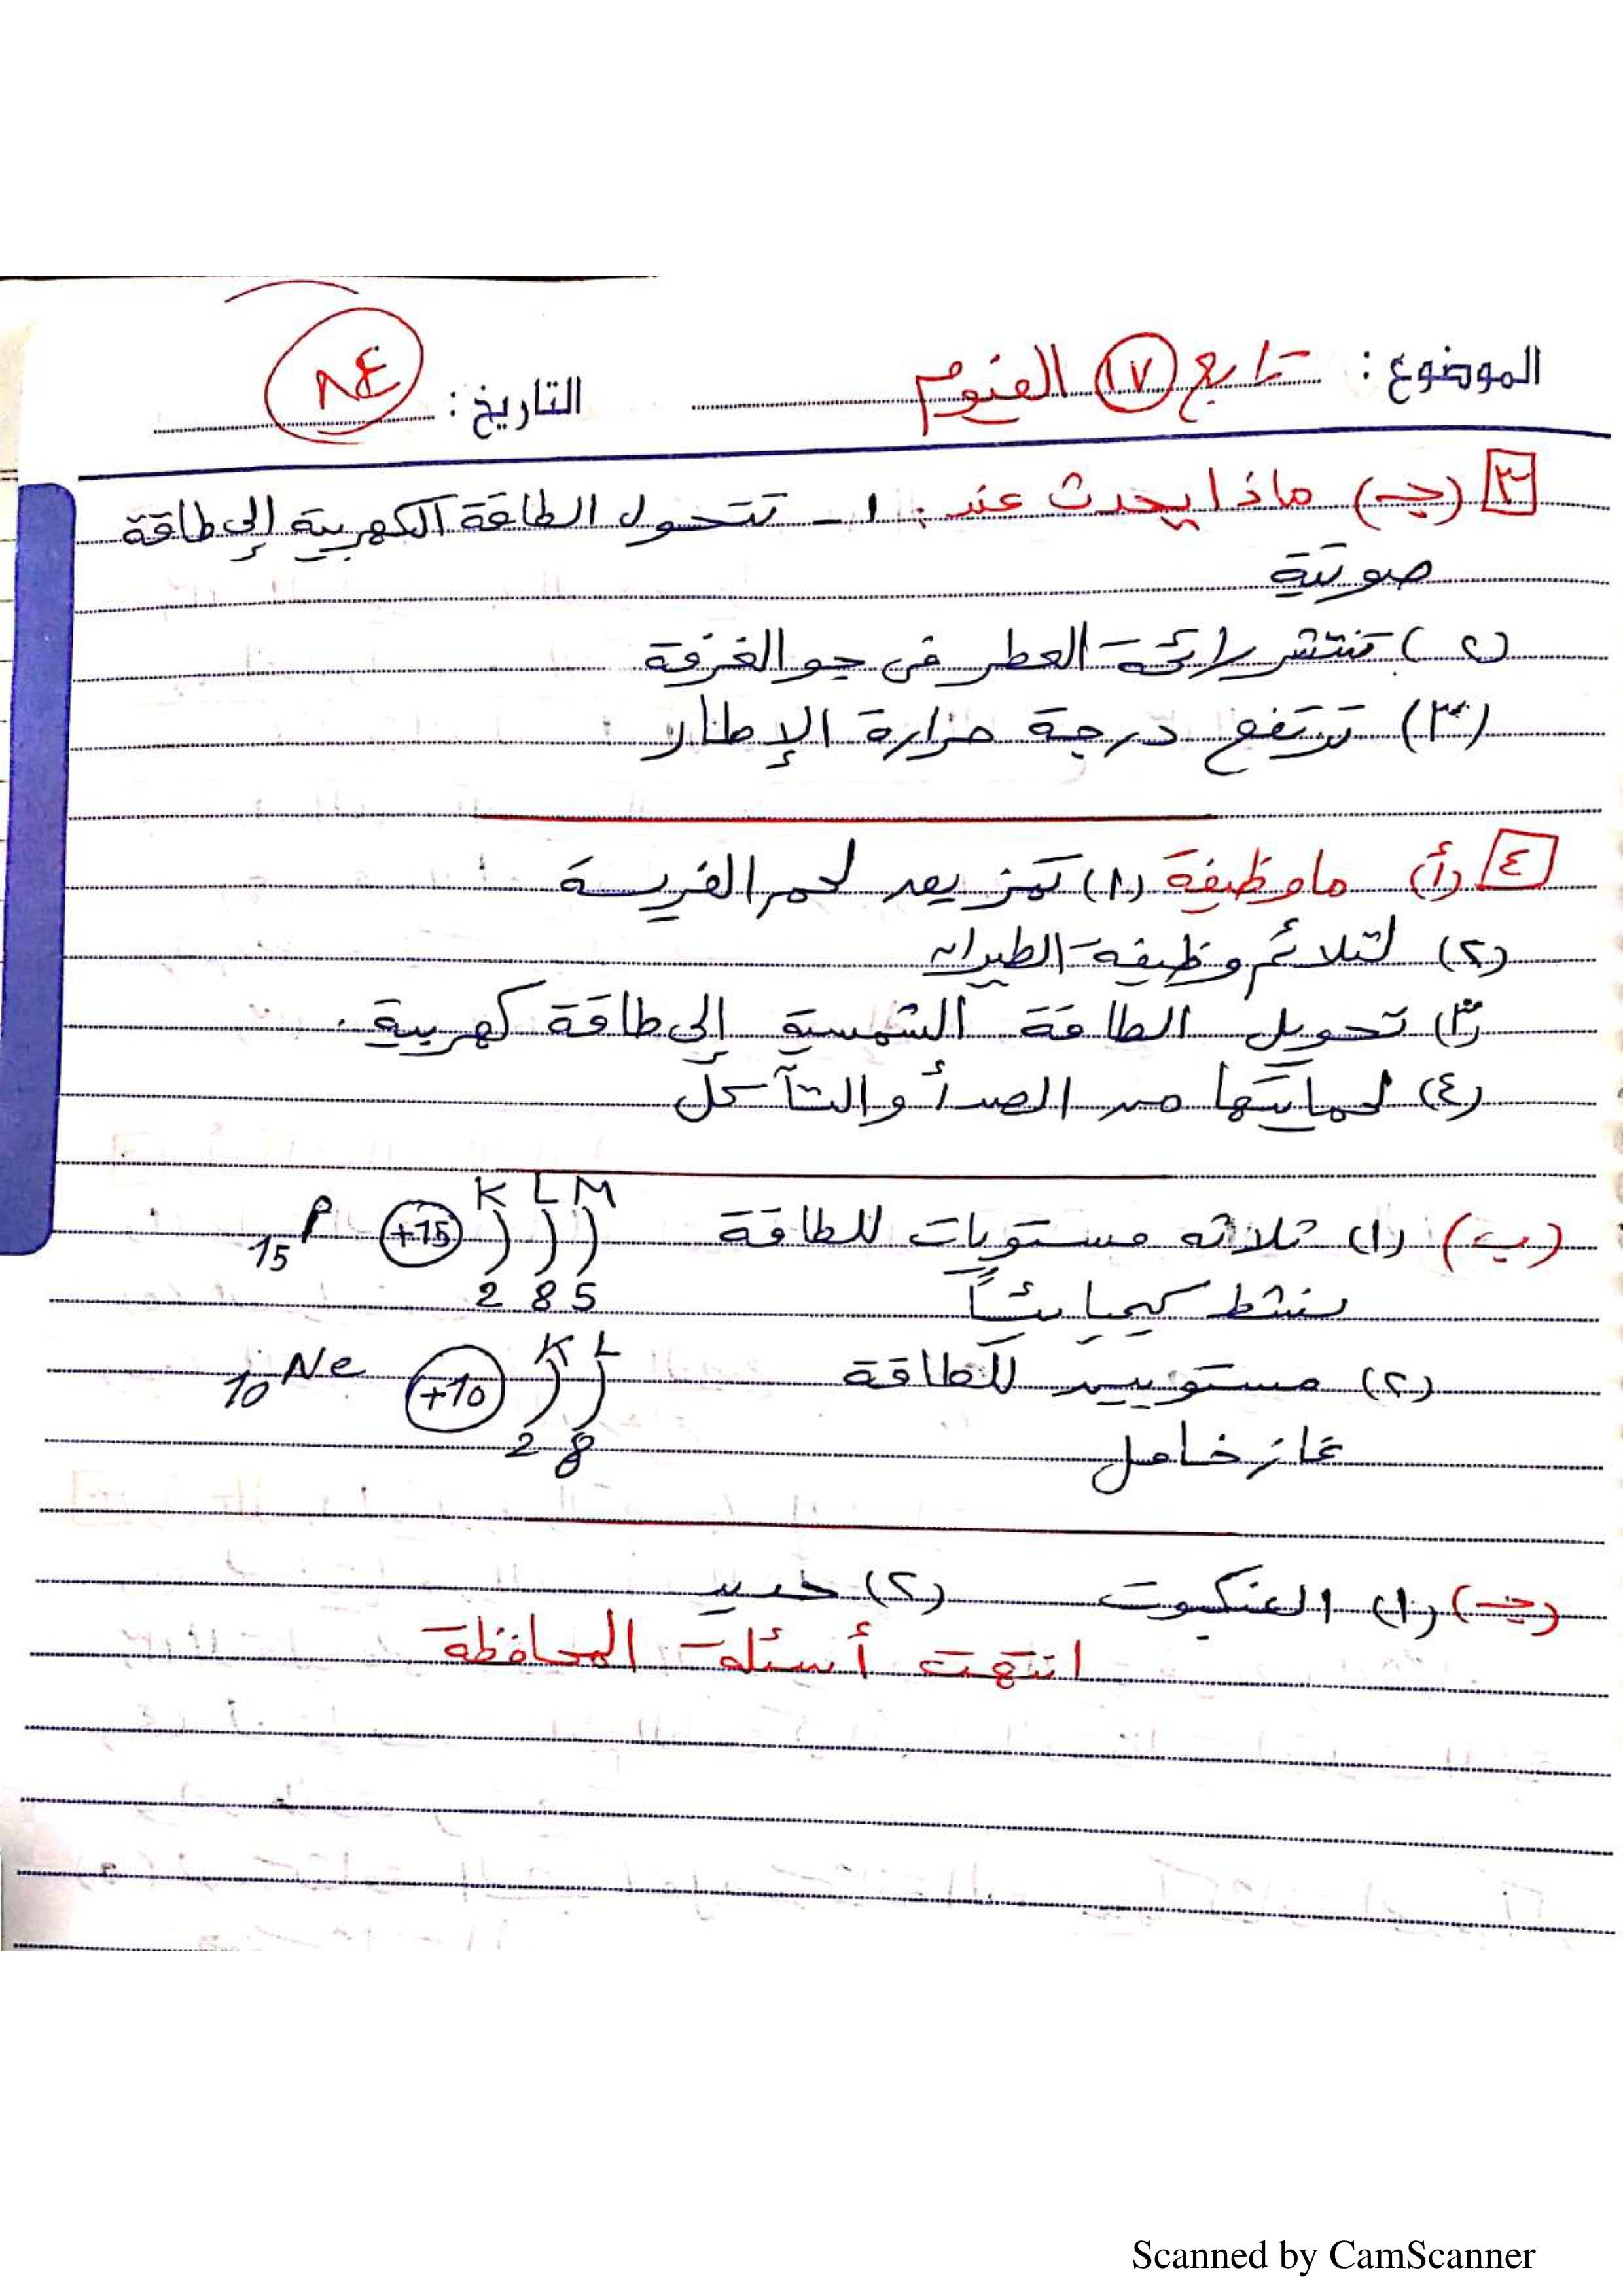 الموضوع: تابع ١٧ الفيوم التاريخ:
٣ (جـ) ماذا يحدث عند: ١- تتحول الطاقة الكهربية إلى طاقة
صوتية
(٢) تنتشر رائحة العطر فى جو الغرفة
(٣) ترتفع درجة حرارة الإطار
٤ (أ) ما وظيفة (١) تمزيق لحم الفريسة
(٢) لتلائم وظيفة الطيران
(٣) تحويل الطاقة الشمسية إلى طاقة كهربية.
(٤) لحمايتها من الصدأ والتآكل
(ب) (١) ثلاثه مستويات للطاقة 15 P +15 K L M
نشط كيميائياً 2 8 5
(٢) مستويين للطاقة 10 Ne +10 K L
غاز خامل 2 8
(جـ) (١) العنكبوت (٢) حديد
انتهت أسئلة المحافظة
Scanned by CamScanner